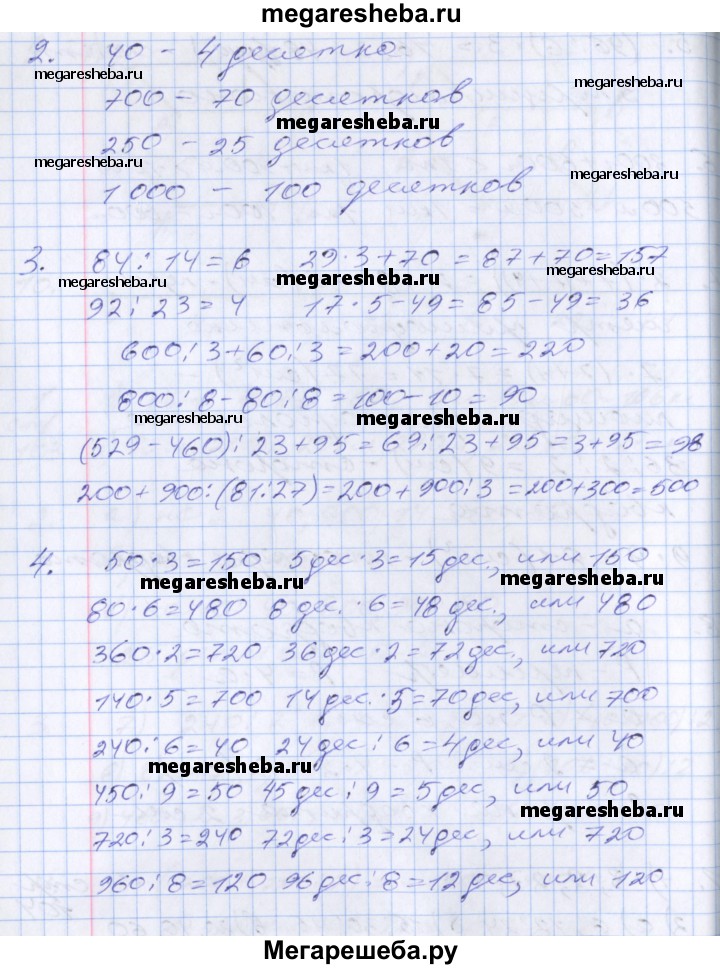 megaresheba.ru
2. 40 - 4 десятка
megaresheba.ru megaresheba.ru
700 - 70 десятков
megaresheba.ru
250 - 25 десятков
megaresheba.ru megaresheba.ru
1 000 - 100 десятков
3. 84 : 14 = 6 29 · 3 + 70 = 87 + 70 = 157
megaresheba.ru megaresheba.ru megaresheba.ru
92 : 23 = 4 17 · 5 - 49 = 85 - 49 = 36
600 : 3 + 60 : 3 = 200 + 20 = 220
800 : 8 - 80 : 8 = 100 - 10 = 90
megaresheba.ru megaresheba.ru
(529 - 460) : 23 + 95 = 69 : 23 + 95 = 3 + 95 = 98
200 + 900 : (81 : 27) = 200 + 900 : 3 = 200 + 300 = 500
4. 50 · 3 = 150 5 дес · 3 = 15 дес., или 150
megaresheba.ru megaresheba.ru
80 · 6 = 480 8 дес. · 6 = 48 дес., или 480
360 · 2 = 720 36 дес · 2 = 72 дес., или 720
140 · 5 = 700 14 дес. · 5 = 70 дес, или 700
240 : 6 = 40 24 дес : 6 = 4 дес, или 40
megaresheba.ru
450 : 9 = 50 45 дес : 9 = 5 дес, или 50
megaresheba.ru
720 : 3 = 240 72 дес : 3 = 24 дес, или 720
960 : 8 = 120 96 дес : 8 = 12 дес, или 120
Мегарешеба.ру